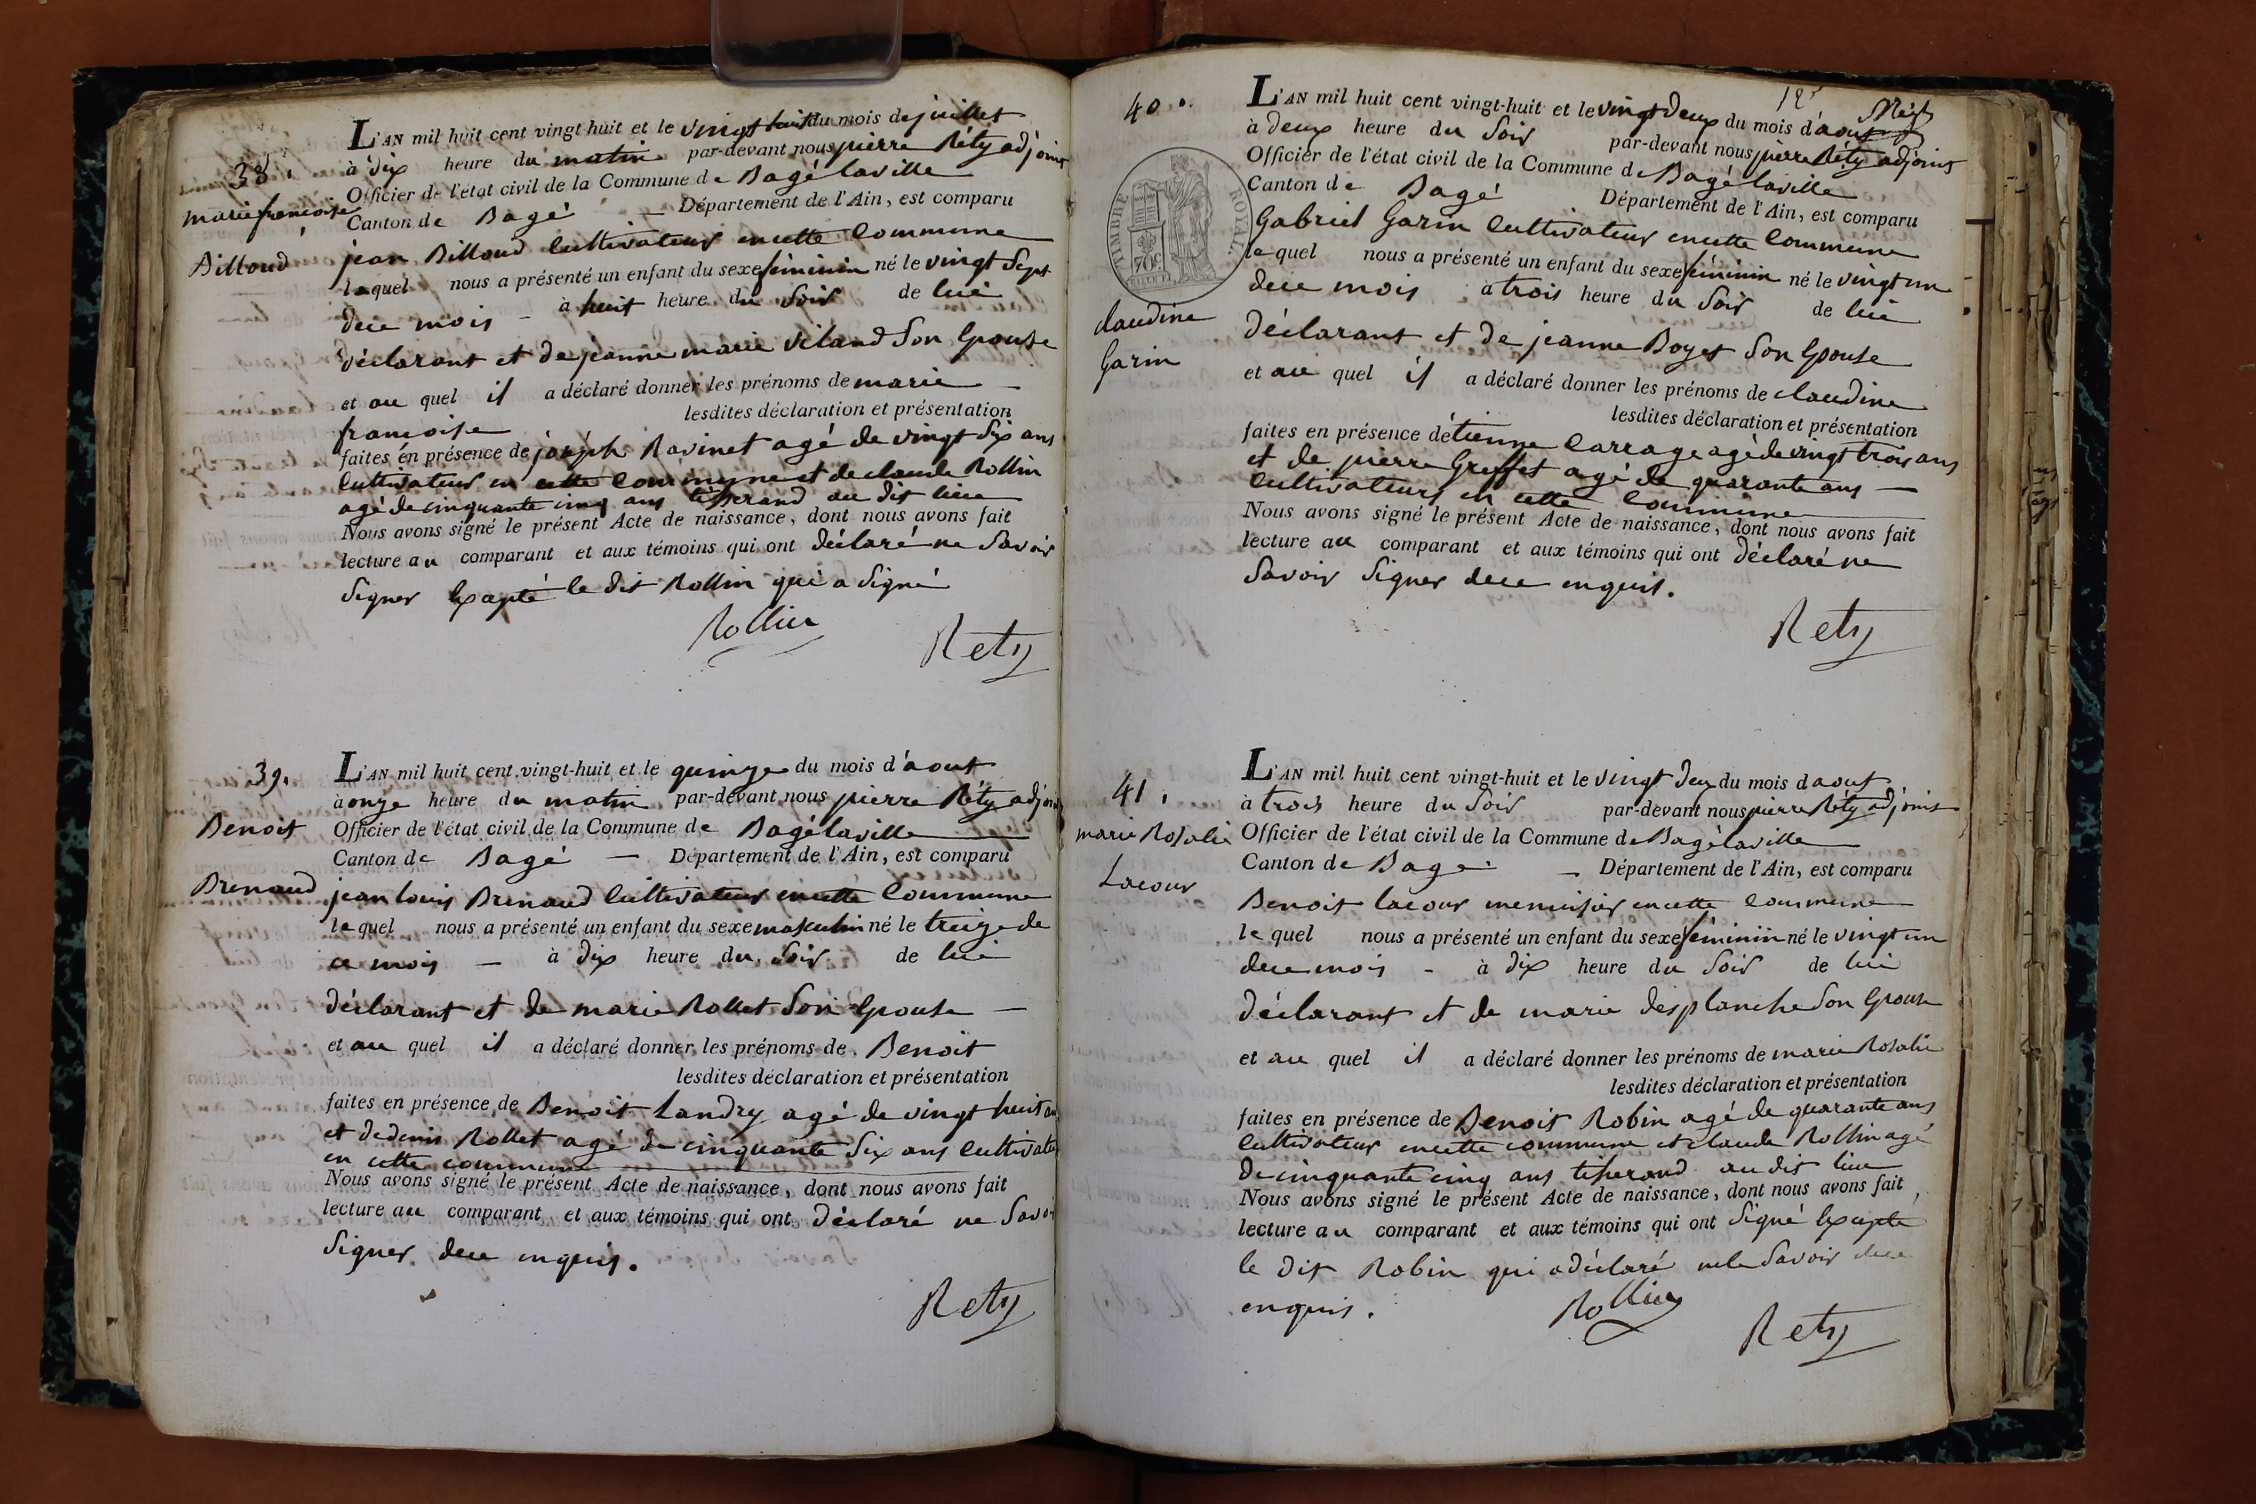 38.
marie francoise
Billoud
L'AN mil huit cent vingt-huit et le vingt huit du mois de juillet
à dix heure du matin par-devant nous pierre Réty adjoint
Officier de l'état civil de la Commune de Bagé laville
Canton de Bagé — Département de l'Ain, est comparu
jean Billoud Cultivateur en cette Commune
lequel nous a présenté un enfant du sexe féminin né le vingt Sept
de ce mois — à huit heure du Soir de lui
déclarant et de jeanne marie Viland Son Epouse
et au quel il a déclaré donner les prénoms de marie —
francoise lesdites déclaration et présentation
faites en présence de joseph Ravinet agé de vingt Six ans
Cultivateur en cette Commune et de claude Rollin
agé de cinquante cinq ans tisserand au dit lieu
Nous avons signé le présent Acte de naissance, dont nous avons fait
lecture au comparant et aux témoins qui ont déclaré ne Savoir
Signer Excepté le dit Rollin qui a Signé
Rollin
Rety
39.
Benoit
Brenaud
L'AN mil huit cent vingt-huit et le quinze du mois d'aout
à onze heure du matin par-devant nous pierre Réty adjoint
Officier de l'état civil de la Commune de Bagé laville
Canton de Bagé — Département de l'Ain, est comparu
jean louis Brenaud Cultivateur en cette Commune
lequel nous a présenté un enfant du sexe masculin né le treize de
ce mois — à dix heure du Soir de lui
déclarant et de marie Rollet Son Epouse —
et au quel il a déclaré donner les prénoms de Benoit
lesdites déclaration et présentation
faites en présence de Benoit Landry agé de vingt huit ans
et de denis Rollet agé de cinquante Six ans Cultivateurs
en cette commune
Nous avons signé le présent Acte de naissance, dont nous avons fait
lecture au comparant et aux témoins qui ont déclaré ne Savoir
Signer de ce enquis.
Rety
40.
TIMBRE ROYAL
70c.
claudine
Garin
L'AN mil huit cent vingt-huit et le vingt deux du mois d'aout
à deux heure du Soir par-devant nous pierre Réty adjoint
Officier de l'état civil de la Commune de Bagé laville
Canton de Bagé Département de l'Ain, est comparu
Gabriel Garin Cultivateur en cette Commune
lequel nous a présenté un enfant du sexe féminin né le vingt un
de ce mois à trois heure du Soir de lui
déclarant et de jeanne Boyet Son Epouse
et au quel il a déclaré donner les prénoms de claudine
lesdites déclaration et présentation
faites en présence d'étienne Carrage agé de vingt trois ans
et de pierre Greffet agé de quarante ans —
Cultivateurs en cette Commune
Nous avons signé le présent Acte de naissance, dont nous avons fait
lecture au comparant et aux témoins qui ont déclaré ne
Savoir Signer de ce enquis.
Rety
41.
marie Rosalie
Lacour
L'AN mil huit cent vingt-huit et le vingt deux du mois d'aout
à trois heure du Soir par-devant nous pierre Réty adjoint
Officier de l'état civil de la Commune de Bagé laville
Canton de Bagé — Département de l'Ain, est comparu
Benoit lacour menuisier en cette Commune
lequel nous a présenté un enfant du sexe féminin né le vingt un
de ce mois - à dix heure du Soir de lui
déclarant et de marie desplanche Son Epouse
et au quel il a déclaré donner les prénoms de marie Rosalie
lesdites déclaration et présentation
faites en présence de Benoit Robin agé de quarante ans
Cultivateur en cette commune et claude Rollin agé
de cinquante cinq ans tisserand au dit lieu
Nous avons signé le présent Acte de naissance, dont nous avons fait
lecture au comparant et aux témoins qui ont Signé Excepté
le dit Robin qui a déclaré ne le Savoir de ce
enquis.
Rollin
Rety